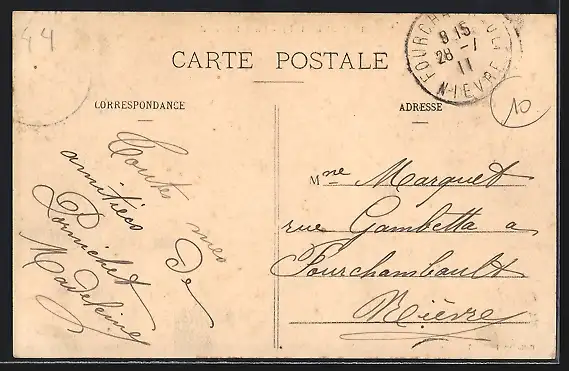 44
CARTE POSTALE
FOURCHAMBAULT
9 15
28 -7
11
NIEVRE
10
CORRESPONDANCE
ADRESSE
Toutes mes
amitiés De
Pornichet
Madeleine
Mme Marquet
rue Gambetta a
Fourchambault
Nièvre